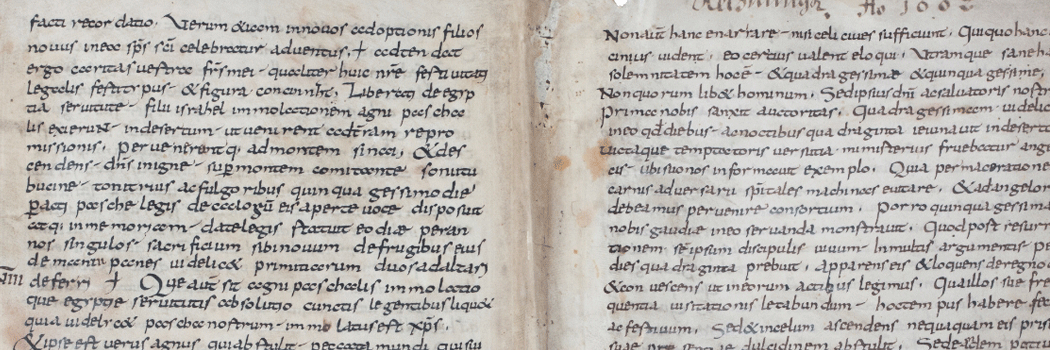 facti recordatio. Verum & cum in novos adoptionis filios
novus in eos sps sci celebratur adventus. + adtendat
ergo caritas vestra frs mei qualiter huic nre festivitati
legalis festi typus & figura concinnit. Liberati de egyp
tia servitute filii israhel immolationem agni paschae
lis exierunt in desertum ut venirent ad terram repro
missionis. Pervenerantq. ad montem sinai. & des
cendens dns in igne supr montem comitante sonitu
bucine tonitruis ac fulgoribus quinquagessimo die
pacti pasche legis decalogu eis aperte voce disposuit
atq. in memoriam date legis statuit eo die per an
nos singulos sacrificium sibi novum de frugibus eius
de panes videlic& primitiarum duos ad altari
deferri + Que aut sit agni paschalis immolatio
que egyptie servitutis absolutio cunctis legentibus liqu&
quia videlic& pascha nostrum immolatus est xps.
& ipse est verus agnus qui abstulit peccata mundi qui sui
Non aut hanc enarrare nisi celi cives sufficiunt. Qui quo hanc
cinius vident. eo certius valent eloqui. Utramque sane h
solemnitatem hoc e & quadragessimae & quinquagessime,
Non quorumlib& hominum. Sed ipsius dni ac salvatoris nostri
Primo nobis sanxit auctoritas. Quadragessimam videlic
in eo qd diebus ac noctibus quadraginta ieiunavit in deserto
victaque temptatoris versutia ministeriis fruebatur ang
eis ubi suo nos informavit exemplo. Quia per maceratione
carnis adversarii spitales machinas evitare. & ad angelor
debeamus pervenire consortium. Porro quinquagessima
nobis gaudia in eo servanda monstravit. Quod post resurr
tionem se ipsum discipulis vivum In multis argumentis pe
dies quadraginta prebuit. apparens eis & loquens de regno
& convescens ut in eorum actibus legimus. Qua illos sue fre
quentia visitationis letabundam hactenus habere
ac festivum. Sed & in celum ascendens nequaquam eis pris
suae pre sentie dulcidinem abstulit. Sed